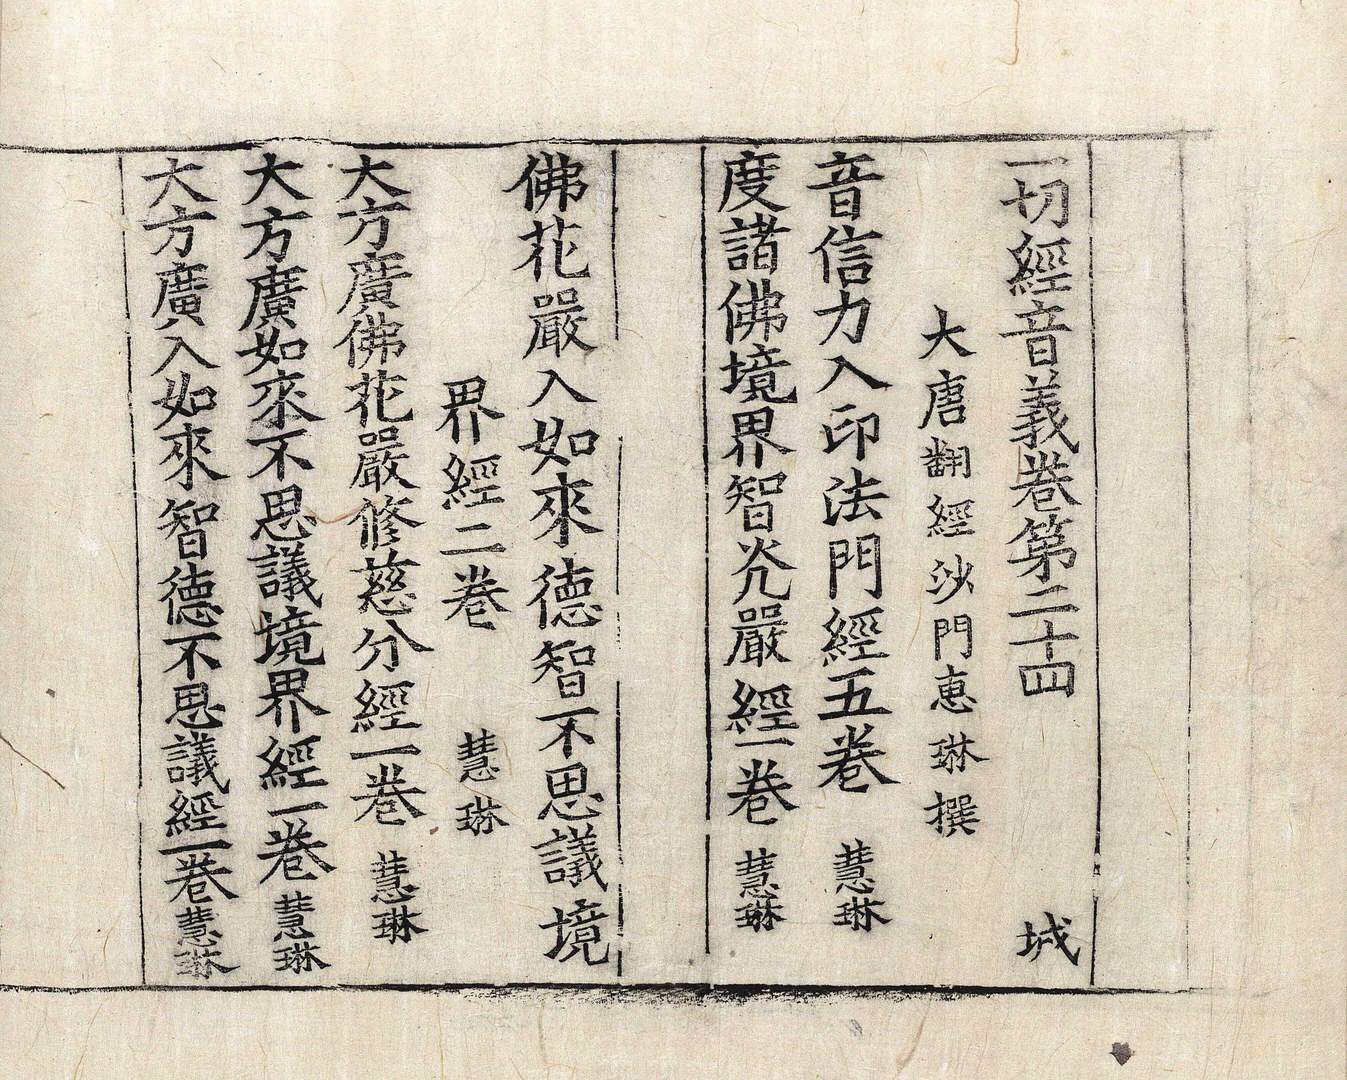 一切經音義卷第二十四 城
大唐翻經沙門惠琳撰
音信力入印法門經五卷 慧琳
度諸佛境界智炗嚴經一卷 慧琳
佛花嚴入如來德智不思議境
界經二卷 慧琳
大方廣佛花嚴修慈分經一卷 慧琳
大方廣如來不思議境界經一卷 慧琳
大方廣入如來智德不思議經一卷 慧琳